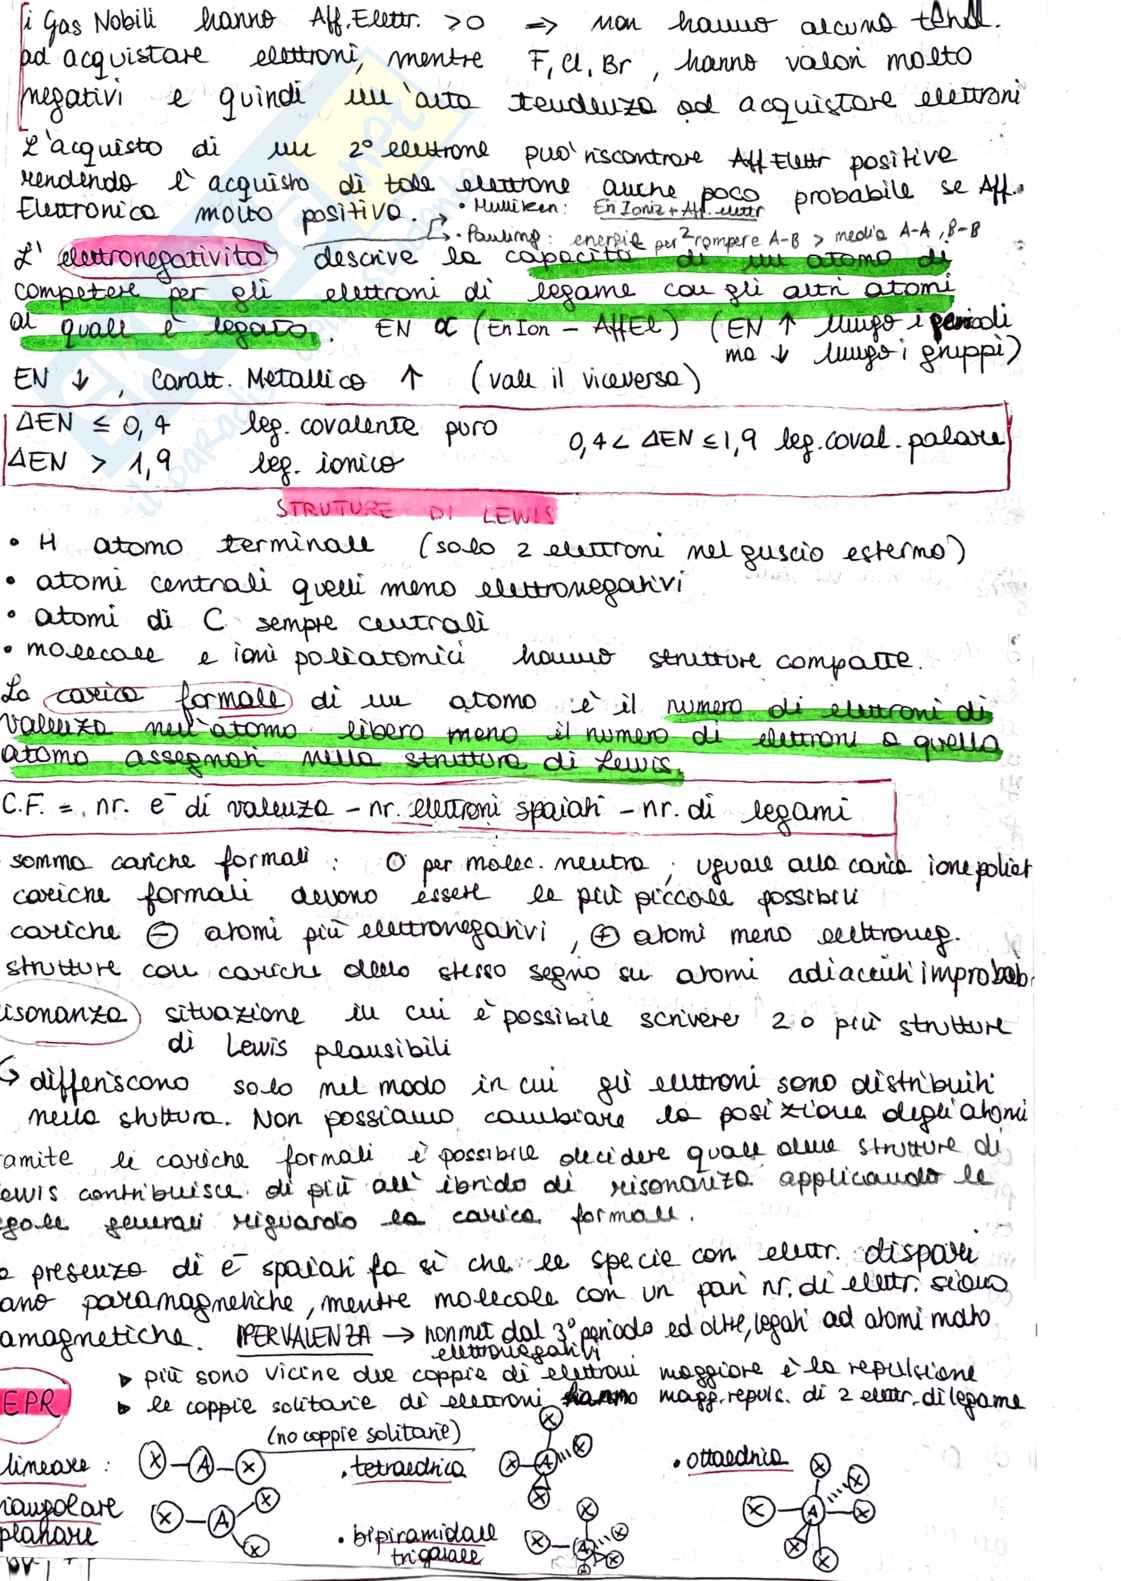 i Gas Nobili hanno Aff.Elettr. >0 ⇒ non hanno alcuna tend.
ad acquistare elettroni, mentre F, Cl, Br, hanno valori molto
negativi e quindi un'alta tendenza ad acquistare elettroni
L'acquisto di un 2° elettrone può riscontrare Aff Elettr positive
rendendo l'acquisto di tale elettrone anche poco probabile se Aff.
Elettronica molto positiva.
• Mulliken: En Ioniz + Aff. elettr
2
• Pauling: energia per rompere A-B > media A-A, B-B
L'elettronegatività descrive la capacità di un atomo di
competere per gli elettroni di legame con gli altri atomi
al quale è legato. EN ∝ (EnIon - AffEl) (EN ↑ lungo i periodi
ma ↓ lungo i gruppi)
EN ↓, Caratt. Metallico ↑ (vale il viceversa)
ΔEN ≤ 0,4 leg. covalente puro 0,4 < ΔEN ≤ 1,9 leg. coval. polare
ΔEN > 1,9 leg. ionico
STRUTURE DI LEWIS
• H atomo terminale (solo 2 elettroni nel guscio esterno)
• atomi centrali quelli meno elettronegativi
• atomi di C sempre centrali
• molecole e ioni poliatomici hanno strutture compatte.
La carica formale di un atomo è il numero di elettroni di
valenza nell'atomo libero meno il numero di elettroni a quello
atomo assegnati nella struttura di Lewis.
C.F. = nr. e⁻ di valenza - nr. elettroni spaiati - nr. di legami
somma cariche formali: 0 per molec. neutra; uguale alla carica ione poliat
cariche formali devono essere le più piccole possibili
cariche ⊖ atomi più elettronegativi, ⊕ atomi meno elettroneg.
strutture con cariche dello stesso segno su atomi adiacenti improbab.
isonanza situazione in cui è possibile scrivere 2 o più strutture
di Lewis plausibili
↳ differiscono solo nel modo in cui gli elettroni sono distribuiti
nella struttura. Non possiamo cambiare la posizione degli atomi
ramite le cariche formali è possibile decidere quale delle strutture di
ewis contribuisce di più all'ibrido di risonanza applicando le
gole generali riguardo la carica formale.
a presenza di e⁻ spaiati fa sì che le specie con elettr. dispari
ano paramagnetiche, mentre molecole con un pari nr. di elettr. siano
amagnetiche. IPERVALENZA → nonmet dal 3° periodo ed oltre, legati ad atomi molto
elettronegativi
▸ più sono vicine due coppie di elettroni maggiore è la repulsione
EPR
▸ le coppie solitarie di elettroni hanno magg. repuls. di 2 elettr. di legame
(no coppie solitarie)
lineare: X-A-X
• tetraedrica X A X X X
• ottaedrica X X X A X X X
riangolare
planare
X-A X X
• bipiramidale
trigonale
X X A X X